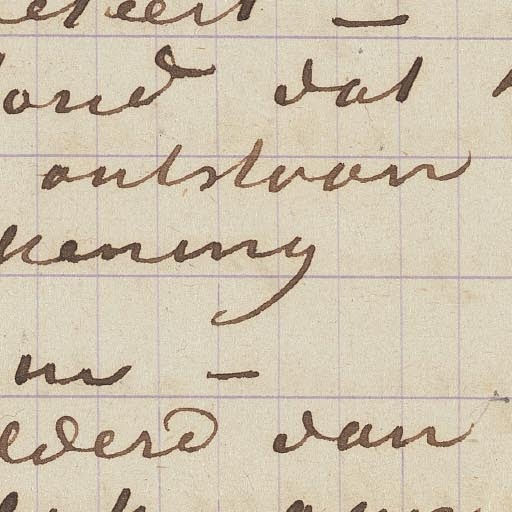 eteert —
ond dat
ontstaan
kening
nu —
ederd van